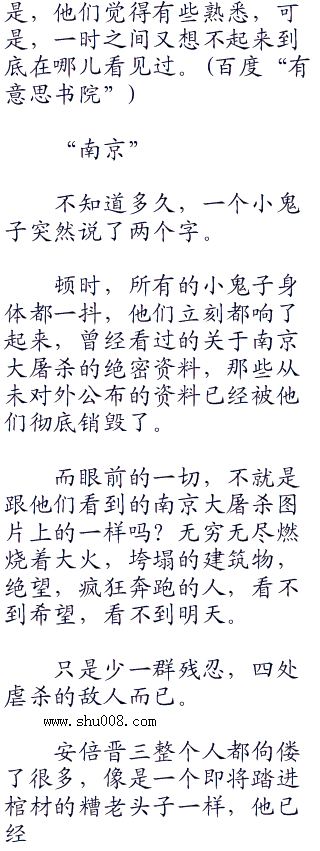 是，他们觉得有些熟悉，可
是，一时之间又想不起来到
底在哪儿看见过。(百度“有
意思书院”)
“南京”
不知道多久，一个小鬼
子突然说了两个字。
顿时，所有的小鬼子身
体都一抖，他们立刻都响了
起来，曾经看过的关于南京
大屠杀的绝密资料，那些从
未对外公布的资料已经被他
们彻底销毁了。
而眼前的一切，不就是
跟他们看到的南京大屠杀图
片上的一样吗？无穷无尽燃
烧着大火，垮塌的建筑物，
绝望，疯狂奔跑的人，看不
到希望，看不到明天。
只是少一群残忍，四处
虐杀的敌人而已。
www.shu008.com
安倍晋三整个人都佝偻
了很多，像是一个即将踏进
棺材的糟老头子一样，他已
经